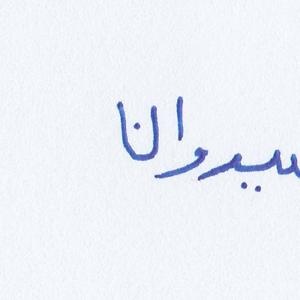 سيروان